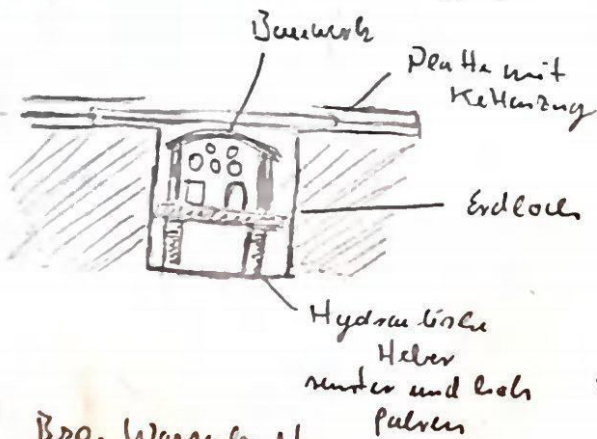 Bauwerk
Platte mit
Kettenzug
Erdloch
Hydraulische
Heber
runter und hoch
fahren